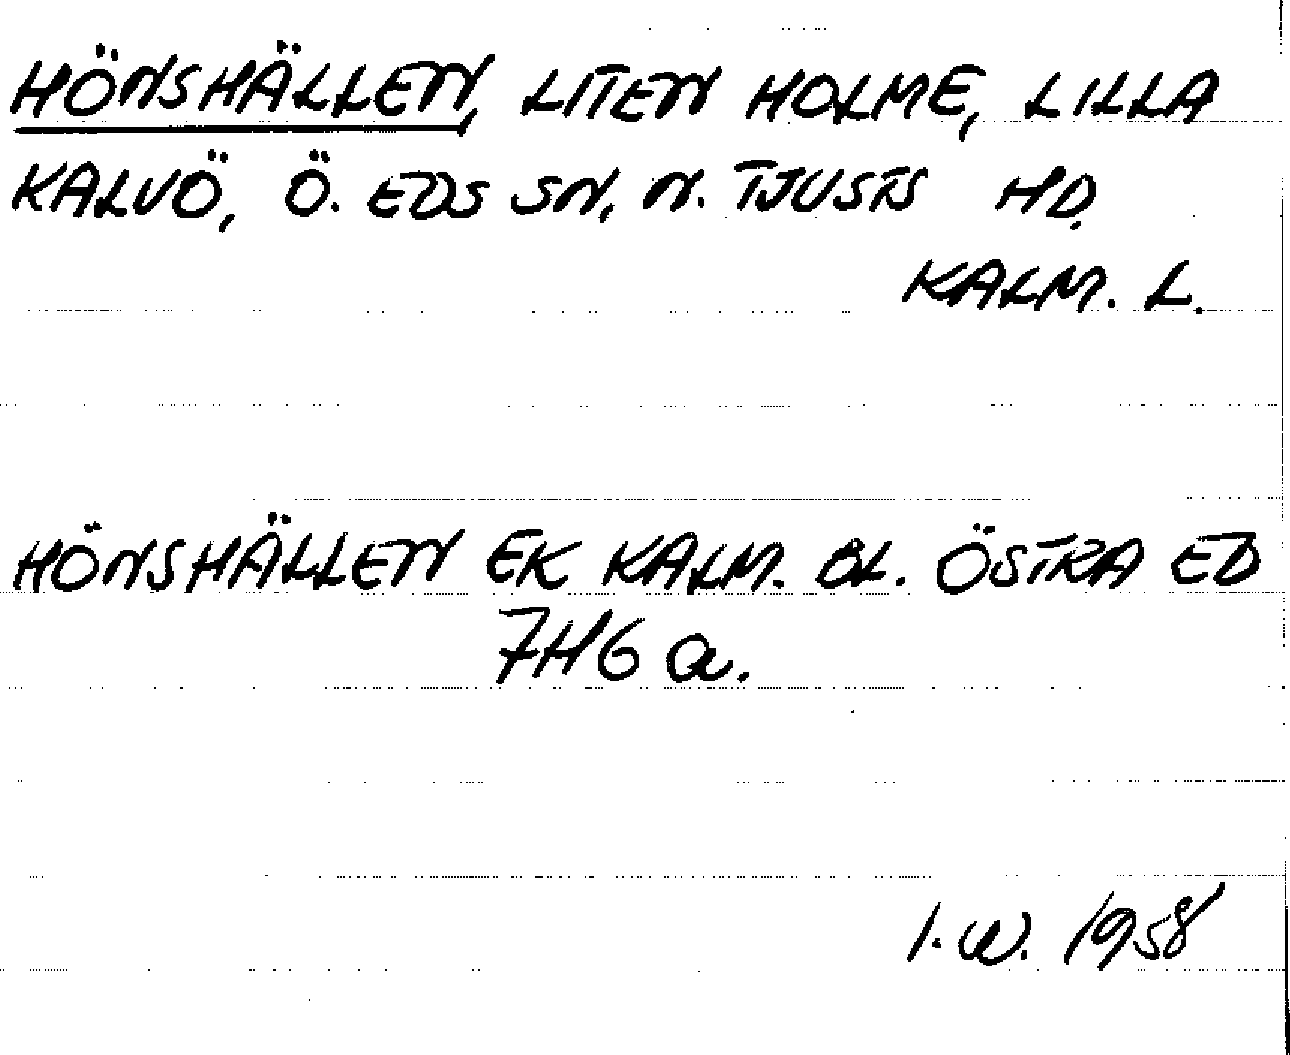 HÖNSHÄLLEN, LITEN HOLME, LILLA
KALVÖ, Ö. EDS SN, N. TJUSTS HD.
KALM. L.
HÖNSHÄLLEN EK KALM. BL. ÖSTRA ED
7H6a.
I.W. 1958